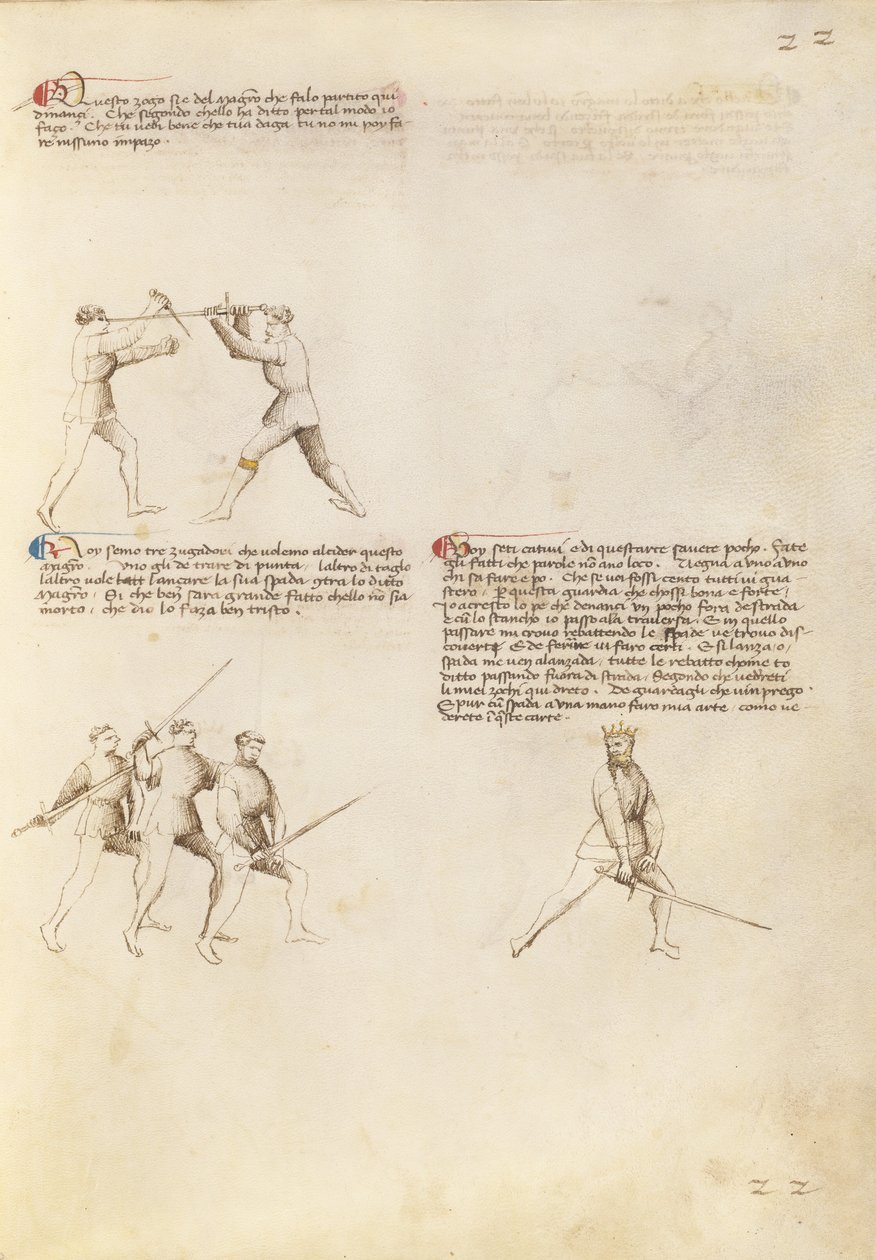 22
Questo zogo si e del Magro che fa lo partito qui
dinançi. Che segondo chello ha ditto per tal modo io
faço. Che tu vedi bene che tua daga tu no mi poy fa-
re nissuno impazo.
Noy semo tre zugadori che volemo alcider questo
Magro. Uno gli de trare di punta, laltro di taglo
laltro vole lançare la sua spada contra lo ditto
Magro. Si che ben sara grande fatto chello non sia
morto, che dio lo faza ben tristo.
Voy seti cativi e di questarte savete pocho. Fate
gli fatti che parole non ano loco. Vegna a uno a uno
chi sa fare e po. Che se voi fossi cento tutti vi gua-
stero, per questa guardia che chossi bona e forte.
Io acresco lo pe che denanci un pocho fora de strada
e cum lo stancho io passo ala traversa. E in quello
passare mi crovo rebattendo le spade ve trovo dis-
coverti. E de ferire vi faro certi. E si lanza o
spada me ven alanzada, tutte le rebatto chome to
ditto passando fuora di strada, segondo che vedreti
li miei zochi qui dreto. De guardagli che vin prego.
E pur cum spada a una mano faro mia arte, come ve-
derete in queste carte.
22